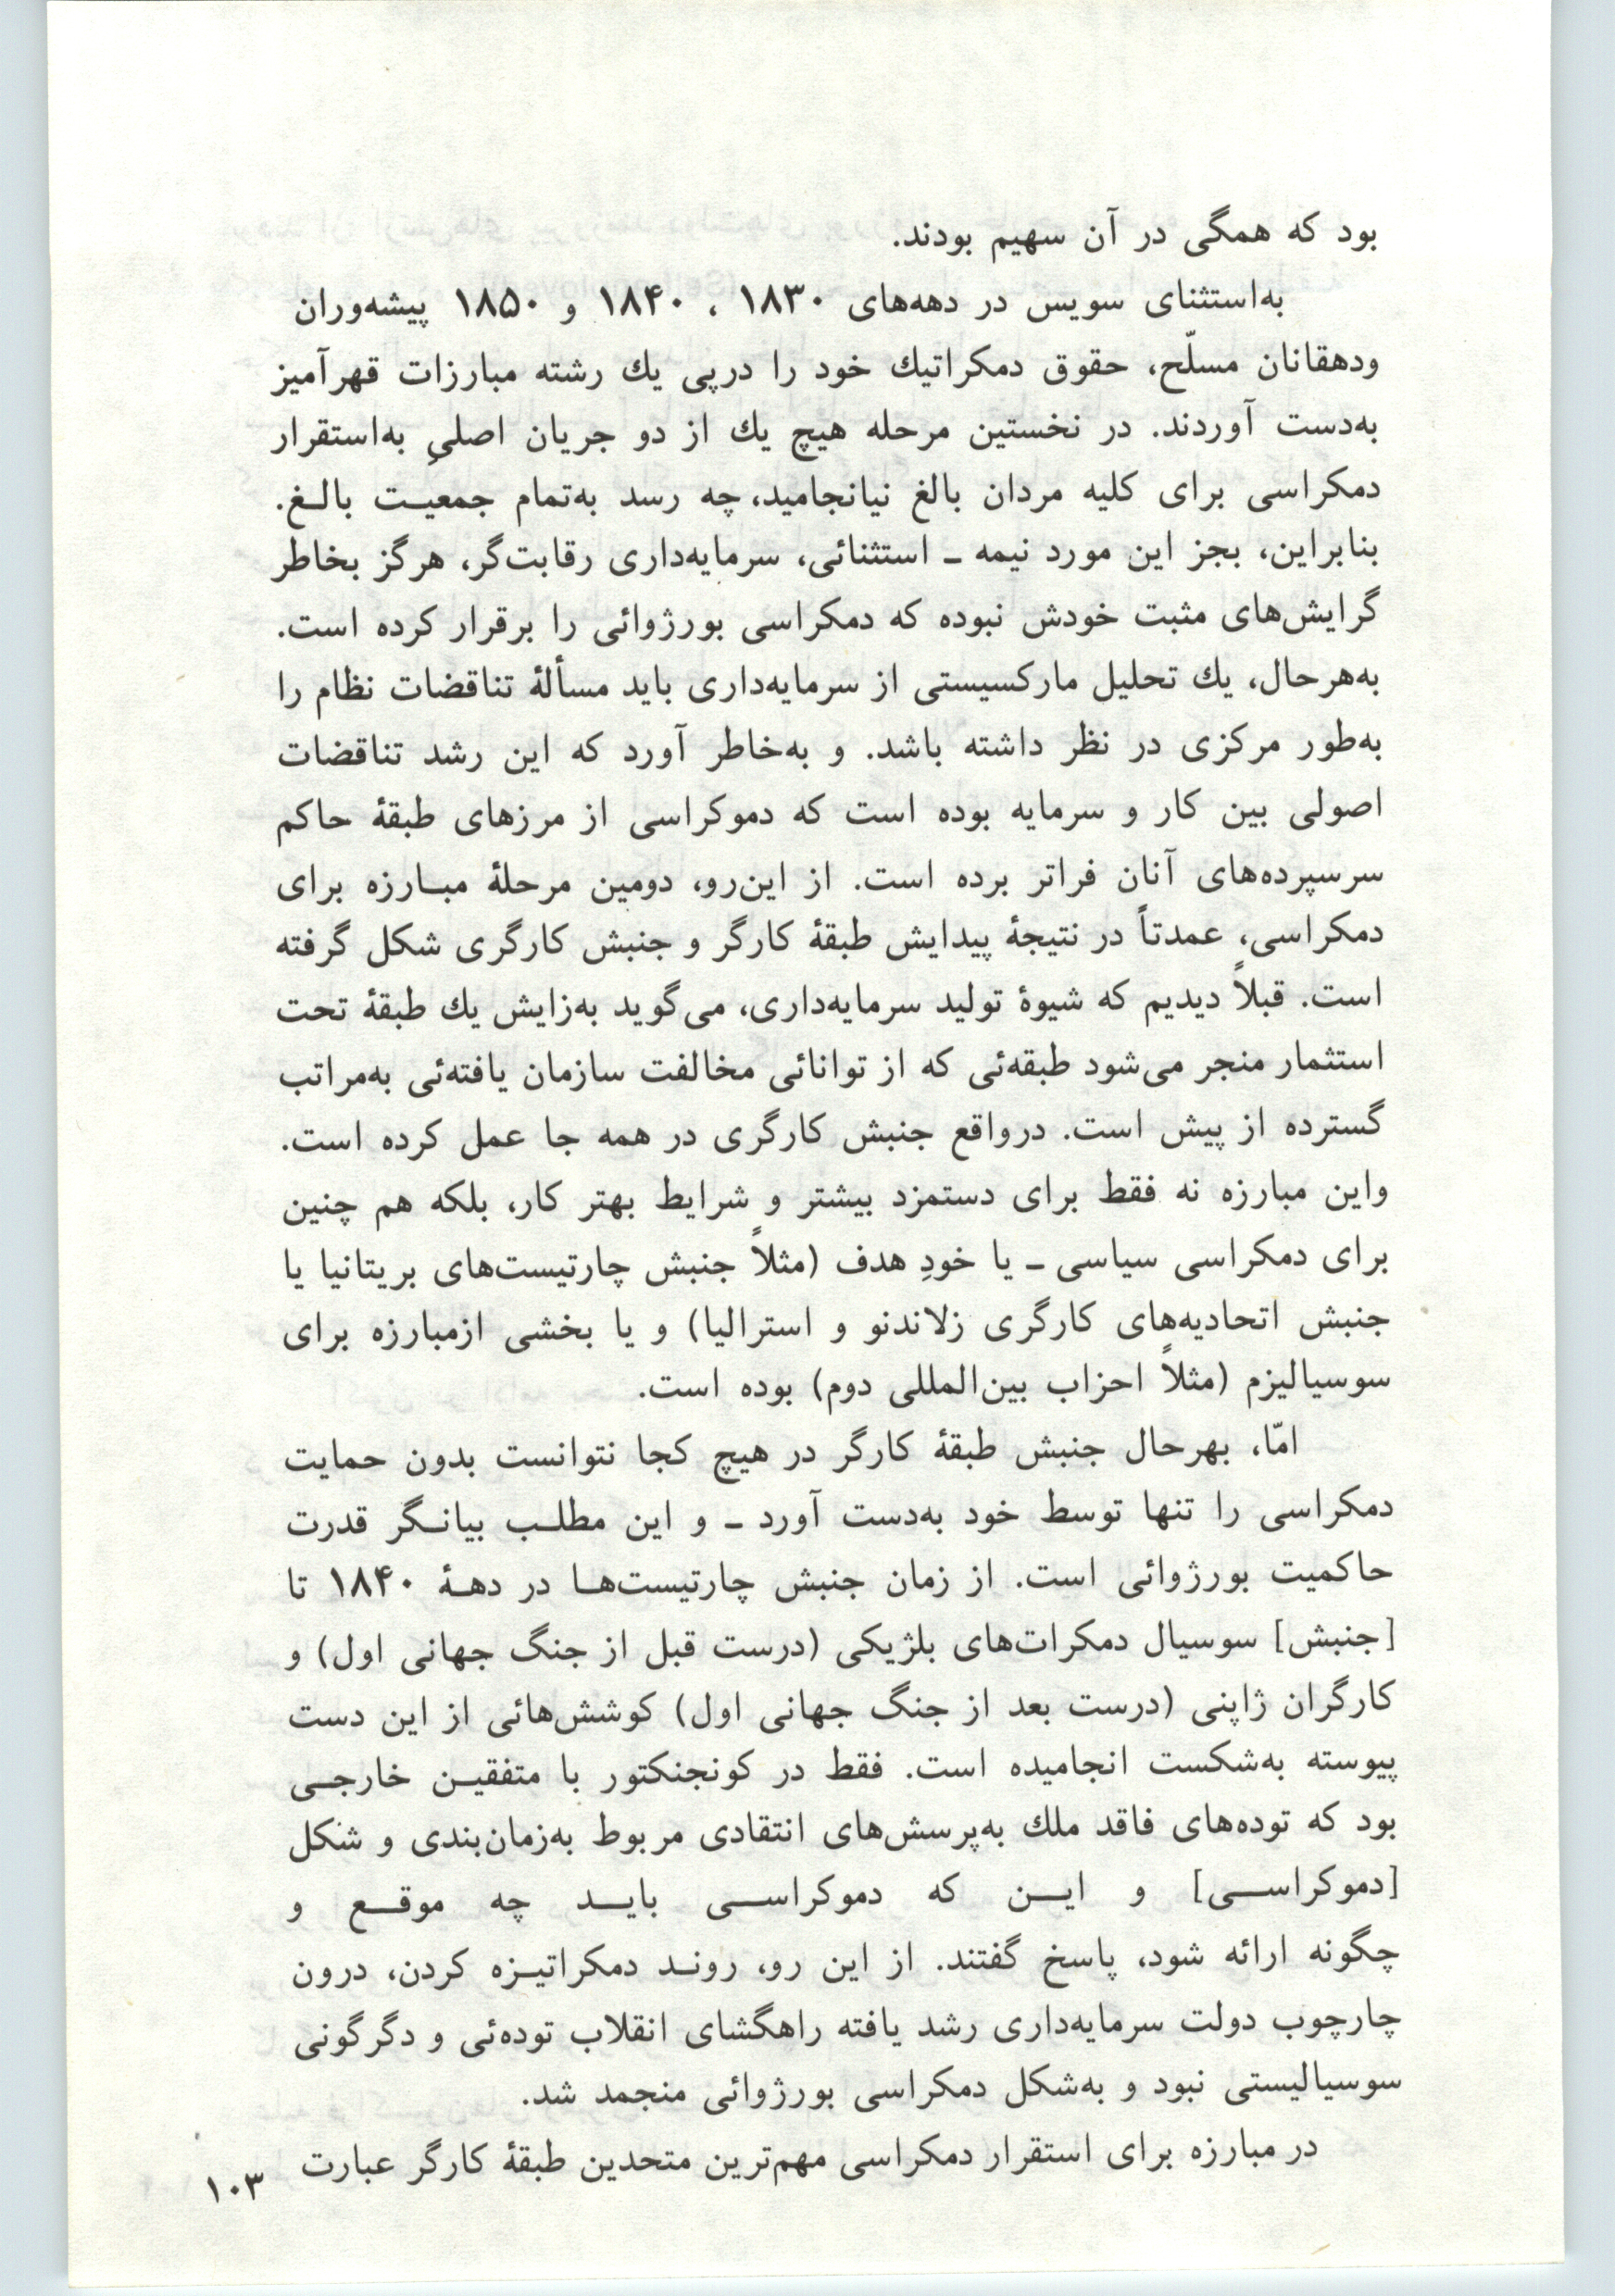 بود که همگی در آن سهیم بودند.
به‌استثنای سویس در دهه‌های ۱۸۳۰ ، ۱۸۴۰ و ۱۸۵۰ پیشه‌وران
ودهقانان مسلّح، حقوق دمکراتیك خود را درپی یك رشته مبارزات قهرآمیز
به‌دست آوردند. در نخستین مرحله هیچ یك از دو جریان اصلیِ به‌استقرار
دمکراسی برای کلیه مردان بالغ نیانجامید، چه رسد به‌تمام جمعیت بالغ.
بنابراین، بجز این مورد نیمه ـ استثنائی، سرمایه‌داری رقابت‌گر، هرگز بخاطر
گرایش‌های مثبت خودش نبوده که دمکراسی بورژوائی را برقرار کرده است.
به‌هرحال، یك تحلیل مارکسیستی از سرمایه‌داری باید مسألهٔ تناقضات نظام را
به‌طور مرکزی در نظر داشته باشد. و به‌خاطر آورد که این رشد تناقضات
اصولی بین کار و سرمایه بوده است که دموکراسی از مرزهای طبقهٔ حاکم
سرسپرده‌های آنان فراتر برده است. از این‌رو، دومین مرحلهٔ مبارزه برای
دمکراسی، عمدتاً در نتیجهٔ پیدایش طبقهٔ کارگر و جنبش کارگری شکل گرفته
است. قبلاً دیدیم که شیوهٔ تولید سرمایه‌داری، می‌گوید به‌زایش یك طبقهٔ تحت
استثمار منجر می‌شود طبقه‌ئی که از توانائی مخالفت سازمان یافته‌ئی به‌مراتب
گسترده از پیش است. درواقع جنبش کارگری در همه جا عمل کرده است.
واین مبارزه نه فقط برای دستمزد بیشتر و شرایط بهتر کار، بلکه هم چنین
برای دمکراسی سیاسی ـ یا خودِ هدف (مثلاً جنبش چارتیست‌های بریتانیا یا
جنبش اتحادیه‌های کارگری زلاندنو و استرالیا) و یا بخشی ازمبارزه برای
سوسیالیزم (مثلاً احزاب بین‌المللی دوم) بوده است.
امّا، بهرحال جنبش طبقهٔ کارگر در هیچ کجا نتوانست بدون حمایت
دمکراسی را تنها توسط خود به‌دست آورد ـ و این مطلب بیانگر قدرت
حاکمیت بورژوائی است. از زمان جنبش چارتیست‌ها در دههٔ ۱۸۴۰ تا
[جنبش] سوسیال دمکرات‌های بلژیکی (درست قبل از جنگ جهانی اول) و
کارگران ژاپنی (درست بعد از جنگ جهانی اول) کوشش‌هائی از این دست
پیوسته به‌شکست انجامیده است. فقط در کونجنکتور با متفقین خارجی
بود که توده‌های فاقد ملك به‌پرسش‌های انتقادی مربوط به‌زمان‌بندی و شکل
[دموکراسی] و این که دموکراسی باید چه موقع و
چگونه ارائه شود، پاسخ گفتند. از این رو، روند دمکراتیزه کردن، درون
چارچوب دولت سرمایه‌داری رشد یافته راهگشای انقلاب توده‌ئی و دگرگونی
سوسیالیستی نبود و به‌شکل دمکراسی بورژوائی منجمد شد.
در مبارزه برای استقرار دمکراسی مهم‌ترین متحدین طبقهٔ کارگر عبارت
۱۰۳